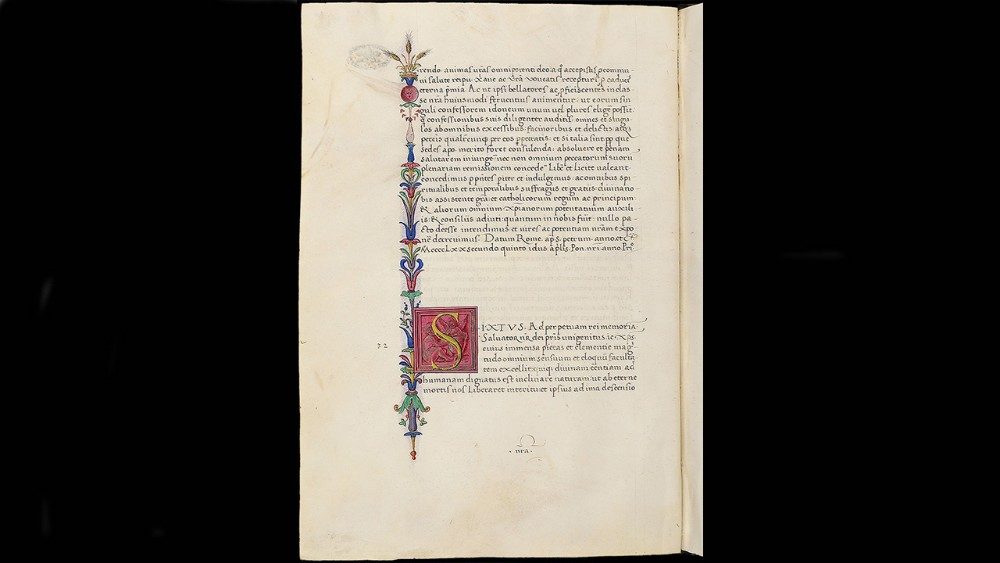 rendo animas vr̃as omnipotenti deo a q̃ accepistis ꝓ communi
ni salute reipu.
eterna p̃mia. Ac ne ipsi bellatores ac ꝓficiscentes in clas
se nr̃a huiusmodi
guli confessorem idoneum unum vel plures elige possit
q̃ confessionibus suis diligenter auditis omnes et singu
los abomnibus excessibus: facinoribus et delictis: ac
petcis per eos ꝑpetratis: et si talia sint ꝓꝑ que
sedes apo. merito foret consulenda: absoluere et penam
salutarem iniunge nec non omnium peccatorum suoru
plenariam remissionem concede libe et licite valeant
concedimus ꝑ pñtes pr̃iter et indulgemus: ac omnibus spi
ritualibus et temporalibus suffragiis et gratiis diuina no
bis assistente gr̃a: et catholicorum regum ac principum
& aliorum omnium xp̃ianorum potentatuum auxili
is: & consiliis adiuti: quantum in nobis fuit: nullo pa
cto deesse intendimus et vires ac potentiam nr̃am expo
nẽ decreuimus. Datum Rome. apd. s. petrum. anno. etc̃
MccccLxxsecundo quinto idus ap̃lis Pon. nr̃i anno pri.
72
SIXTVS. Ad perpetuam rei memoria
Saluator nr̃ dei pr̃is unigenitus
euius immensa pietas et clementie mag
tudo omnium sensuum et eloquii faculta
tem excellit: quiq; diuinam
humanam dignatus est inclinare naturam: ut ab eterne
mortis nos liberaret interitu: et ipsius ad ima descensio
nr̃a.